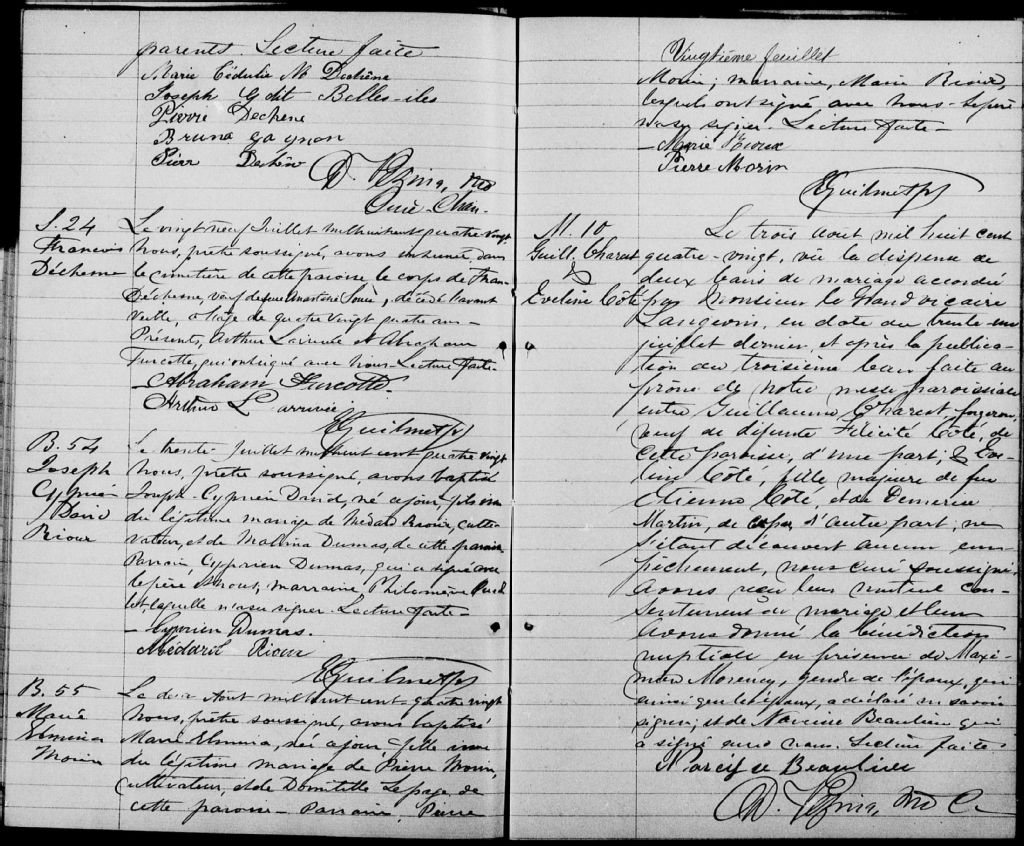 parents. Lecture faite
Marie Cédulie M Dechêne
Joseph Gdit Belles-iles
Pierre Dechene
Bruno gagnon
Pierr Dechên
D. Vézina, Ptre
Curé
S. 24
Francois
Déchesne
Le vingt neuf Juillet mil huit cent quatre vingt
Nous, prêtre soussigné, avons inhumé, dans
le cimetière de cette paroisse le corps de Fran
Déchesne, veuf de feue Anastasie, décédé l'avant
veille, à l'age de quatre vingt quatre ans
Présents, Arthur Larrivée et Abraham
Turcotte, qui ont signé avec Nous. Lecture faite
Abraham Turcotte
Arthur Larrivée
EGuilmet ptr
B. 54
Joseph
Cyprien
David
Rioux
Le trente Juillet mil huit cent quatre vingt
Nous, prêtre soussigné, avons baptisé
Joseph-Cyprien David, né ce jour, fils issu
du légitime mariage de Médard Rioux, culti-
vateur, et de Malvina Dumas, de cette paroisse.
Parrain Cyprien Dumas, qui a signé avec
le père & nous, marraine, Philomène
laquelle n'a su signer. Lecture faite
Cyprien Dumas.
Médard Rioux
EGuilmet ptr
B. 55
Marie
Elmina
Morin
Le deux Aout mil huit cent quatre vingt
Nous, prêtre soussigné, avons baptisé
Marie Elmina, née ce jour, fille issue
du légitime mariage de Pierre Morin,
cultivateur, et de Domitille Lepage, de
cette paroisse. Parrain, Pierre
Vingtième feuillet
Morin; marraine, Marie Rioux,
lesquels ont signé avec Nous. Le père
n'a su signer. Lecture faite
Marie Rioux
Pierre Morin
EGuilmet ptr
M. 10
Guill. Charest
&
Eveline Côté
Le trois aout mil huit cent
quatre-vingt, vu la dispense de
deux bans de mariage accordée
par Monsieur le Grand vicaire
Langevin, en date du trente un
juillet dernier, et après la publica-
tion du troisième ban faite au
prône de notre messe paroissiale
entre Guillaume Charest, forgeron,
veuf de défunte Félicité Côté, de
cette paroisse, d'une part; & Eve-
line Côté, fille majeure de feu
Etienne Côté, et de Demerise
Martin, de ce lieu d'autre part; ne
s'étant découvert aucun em-
pêchement, nous curé soussigné
avons reçu leur mutuel con-
sentement de mariage et leur
avons donné la bénédiction
nuptiale en présence de Maxi-
men Morency, gendre de l'époux, qui
ainsi que les époux, a déclaré ne savoir
signer; et de Narcisse Beaulieu qui
a signé avec nous. Lecture faite.
Narcisse Beaulieu
D. Vézina, Ptre C